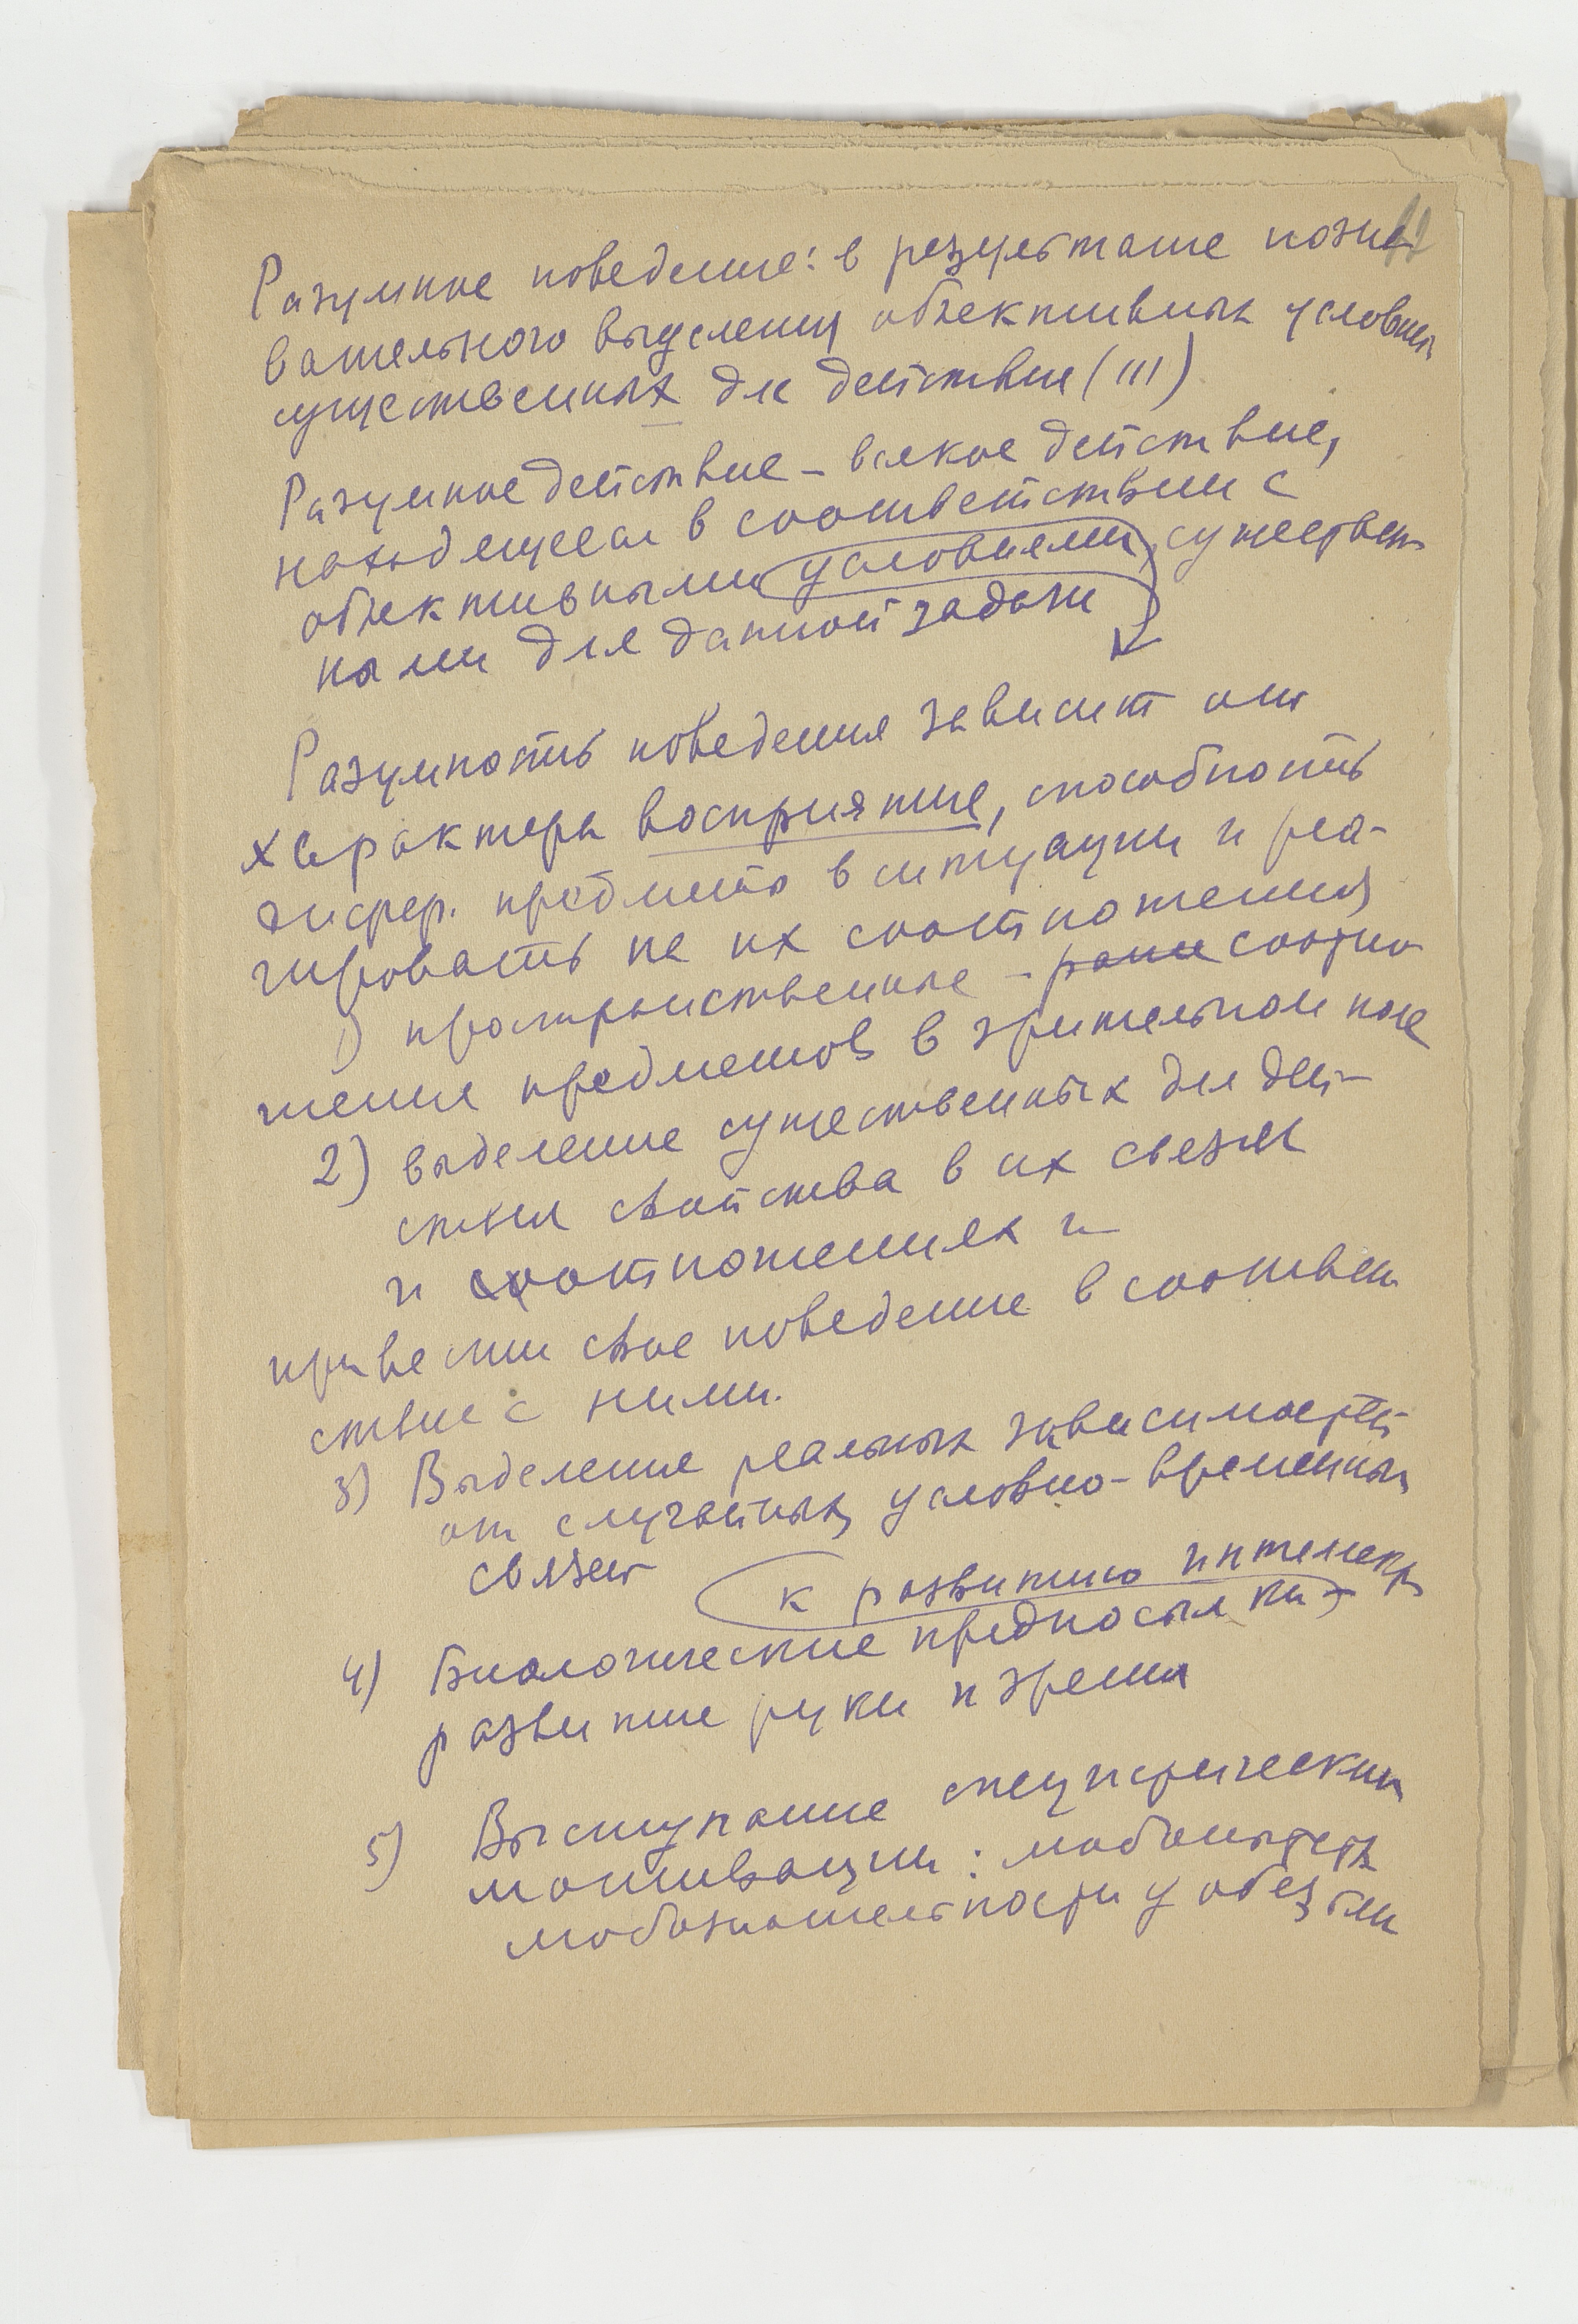 Разумное поведение: в результате позна
вательного выделения объективных условий
существенных для действия (!!!)
Разумное действие – всякое действие,
находящееся в соответствии с
объективными условиями, существен
ными для данной задачи
Разумность поведения зависит от
характера восприятия, способность
дифер. предмета в ситуации и реа-
гировать на их соотношения
1) пространственные – соотно
шения предметов в зрительном поле
2) выделение существенных для дей-
ствия свойства в их связях
и соотношениях и
привести свое поведение в соответ
ствие с ними.
3) Выделение реальных зависимостей
от случайных, условно-временных
связей
к развитию интеллекта
4) Биологические предпосылки –
развитие руки и зрения
5) Выступание специфических
мотивации: любопытств
любознательности у обезьян